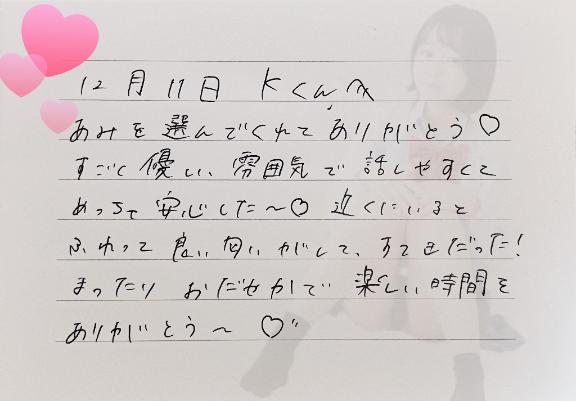 12月11日 Kくんへ
あみを選んでくれてありがとう♡
すごく優しい雰囲気で話しやすくて
めっちゃ安心した〜♡ 近くにいると
ふわって良い匂いがして、すてきだった!
まったり おだやかで 楽しい時間を
ありがとう〜 ♡"